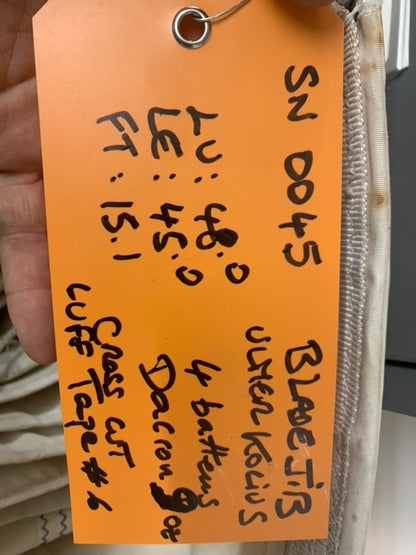 SN 0045
BLADE JIB
ULMER KOLIUS
LU: 48.0
LE: 45.0
FT: 15.1
4 battens
Dacron 9 oz
Cross cut
LUFF Tape #6